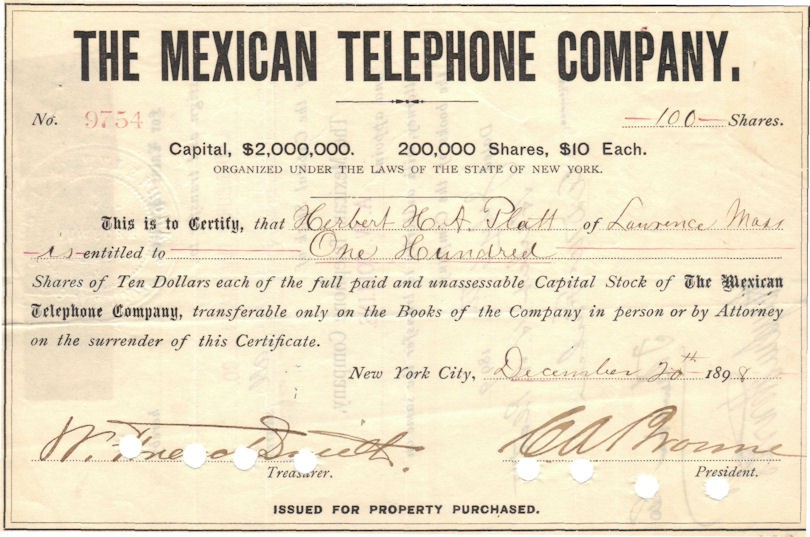 THE MEXICAN TELEPHONE COMPANY.
No. 9754 —100— Shares.
Capital, $2,000,000. 200,000 Shares, $10 Each.
ORGANIZED UNDER THE LAWS OF THE STATE OF NEW YORK.
This is to Certify, that Herbert H. A. Platt of Lawrence Mass
is entitled to One Hundred
Shares of Ten Dollars each of the full paid and unassessable Capital Stock of The Mexican
Telephone Company, transferable only on the Books of the Company in person or by Attorney
on the surrender of this Certificate.
New York City, December 20th 1898
W.
Treasurer.
President.
ISSUED FOR PROPERTY PURCHASED.